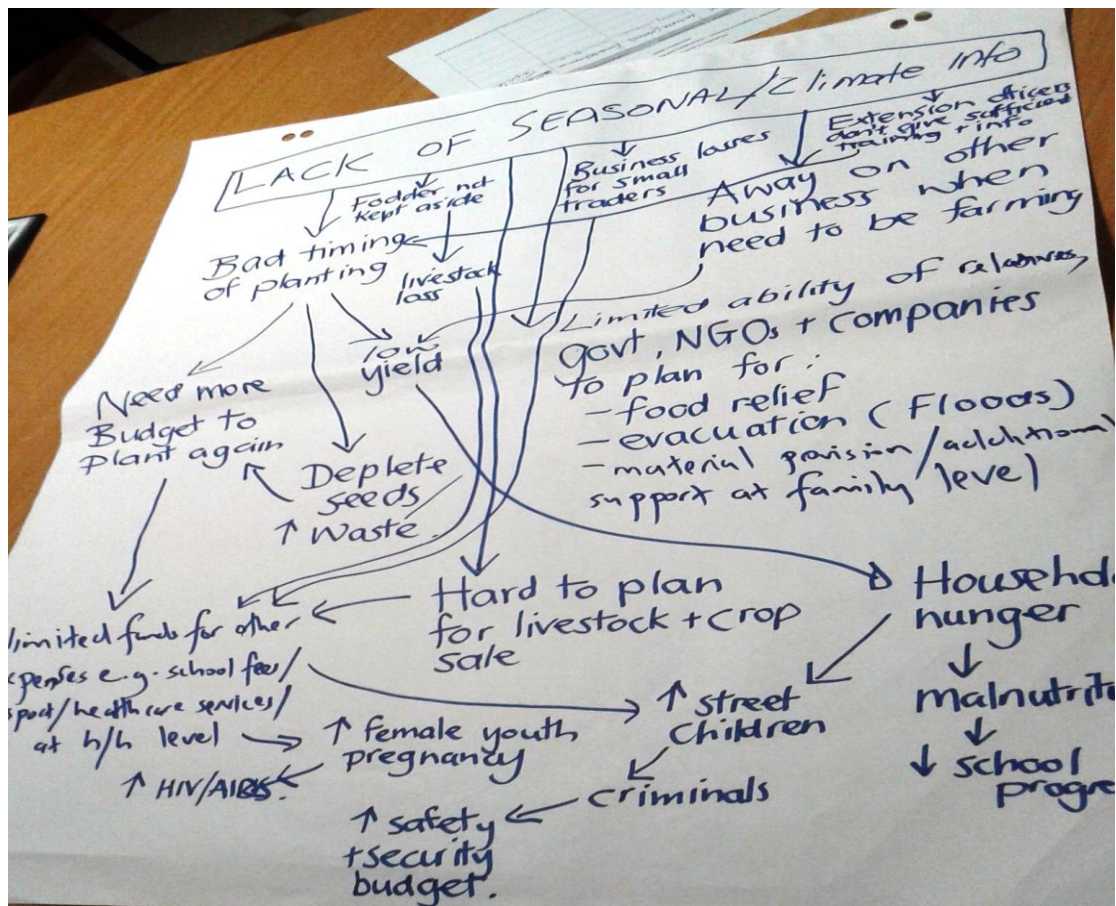 LACK OF SEASONAL/Climate Info
Fodder not
kept aside
Business losses
for small
traders
Extension officers
don't give sufficient
training + info
Bad timing
of planting
livestock
loss
Away on other
business when
need to be farming
low
yield
Limited ability of relatives,
govt, NGOs + companies
to plan for:
- food relief
- evacuation (Floods)
- material provision/additional
support at family level
Need more
Budget to
Plant again
Deplete
seeds
↑ Waste.
Hard to plan
for livestock + crop
sale
Househo
hunger
malnutriti
↓ school
progre
limited funds for other
penses e.g. school fees/
sport/healthcare services/
at h/h level
↑ female youth
pregnancy
↑ HIV/AIDS.
↑ street
children
criminals
↑ safety
+ security
budget.